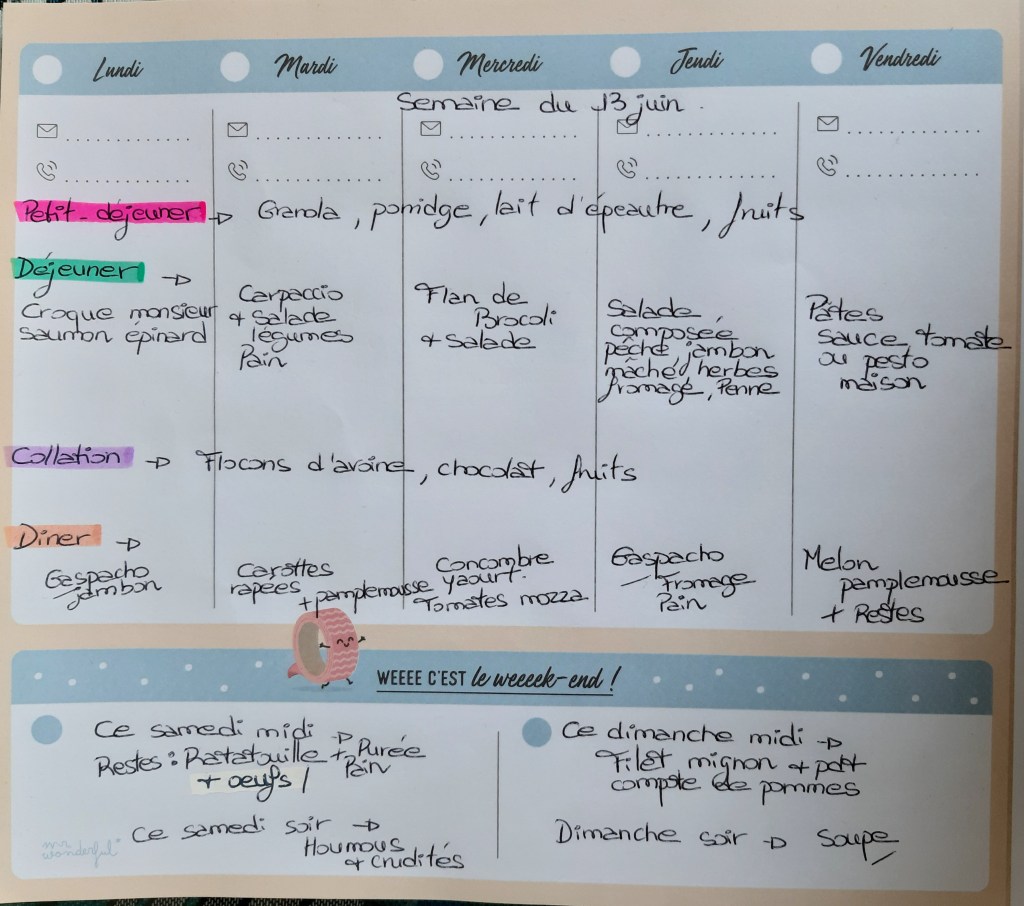 Lundi
Mardi
Mercredi
Jeudi
Vendredi
Semaine du 13 juin.
Petit-déjeuner → Granola, porridge, lait d'épeautre, fruits
Déjeuner →
Croque monsieur
saumon épinard
Carpaccio
+ Salade
légumes
Pain
Flan de
Brocoli
+ Salade
Salade
composée,
pêche, jambon
mâche, herbes
fromage, Penne
Pâtes
sauce tomate
ou pesto
maison
Collation → Flocons d'avoine, chocolat, fruits
Diner →
Gaspacho
jambon
Carottes
rapées
+ pamplemousse
Concombre
yaourt.
Tomates mozza
Gaspacho
Fromage
Pain
Melon
pamplemousse
+ Restes
WEEEE C'EST le weeeek-end !
Ce samedi midi →
Restes : Ratatouille + Purée
Pain
+ oeufs /
Ce samedi soir →
Houmous
+ crudités
Ce dimanche midi →
Filet mignon + pdt
compote de pommes
Dimanche soir → Soupe
mr
wonderful*